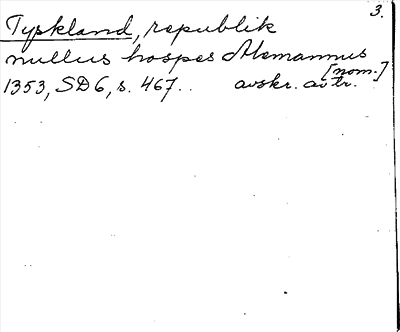 3.
Tyskland, republik
nullus hospes Alemannus
[nom.]
1353, SD 6, s. 467. . avskr. av tr.